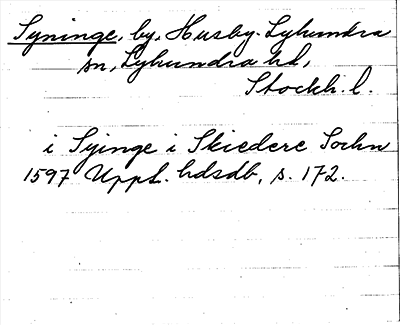 Syninge, by, Husby-Lyhundra
sn, Lyhundra hd,
Stockh. l.
i Syinge i Skiedere Sochn
1597 Uppl. hdsdb, s. 172.